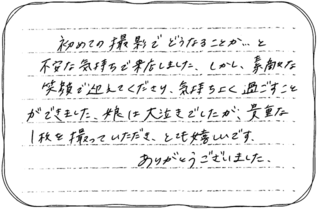 初めての撮影でどうなることか…と
不安な気持ちで来店しました。しかし、素敵な
笑顔で迎えてくださり、気持ちよく過ごすこと
ができました。娘は大泣きでしたが、貴重な
1枚を撮っていただき、とても嬉しいです。
ありがとうございました。